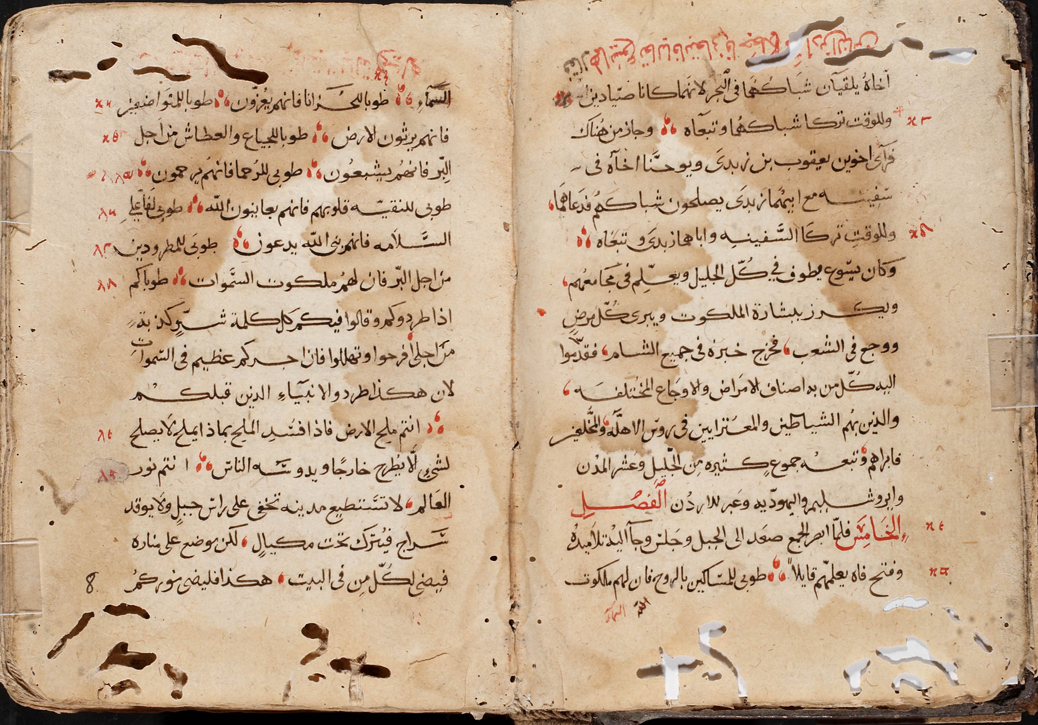 أخاه يلقيان شباكهما في البحر لانهما كانا صيادين
وللوقت تركا شباكهما وتبعاه وجاز من هناك
فرأى اخوين يعقوب بن زبدى ويوحنا اخاه في
سفينه مع ابيهما زبدى يصلحون شباكهم فدعاهما
وللوقت تركا السفينه واباهما زبدى وتبعاه
وكان يسوع يطوف في كل الجليل ويعلم في مجامعهم
ويكرز ببشارة الملكوت ويبرى كل مرض
ووجع في الشعب فخرج خبره في جميع الشام فقدموا
اليه كل من به اصناف الامراض والاوجاع المختلفه
والذين بهم الشياطين والمعترايين في روس الاهله والمخلعين
فابراهم وتبعه جموع كثيره من الجليل وعشر المدن
وايروشليم واليهوديه وعبر الاردن الفصل
الخامس فلما ابصر الجمع صعد الى الجبل وجلس وجا اليه تلاميذه
وفتح فاه يعلمهم قايلا طوبى للمساكين بالروح فان لهم ملكوت
الله
السماء طوبا للحزانا فانهم يعزون طوبا للمتواضعين
فانهم يرثون الارض طوبا للجياع والعطاش من اجل
البر فانهم يشبعون طوبى للرحما فانهم يرحمون
طوبى للنقيه قلوبهم فانهم يعاينون الله طوبى لفاعلي
السلامه فانهم بني الله يدعون طوبى للمطرودين
من اجل البر فان لهم ملكوت السموات طوباكم
اذا طردوكم وقالوا فيكم كل كلمة شر كذبة
من اجلي افرحوا وتهللوا فان اجركم عظيم في السموات
لان هكذا طردوا الانبياء الذين قبلكم
انتم ملح الارض فاذا افسد الملح بماذا يملح لا يصلح
لشي لا يطرح خارجا ويدوسه الناس انتم نور
العالم لا تستطيع مدينه تخفى على راس جبل ولا يوقد
سراج فيترك تحت مكيال لكن موضع على مناره
فيضي لكل من في البيت هكذا فليضي نوركم
8